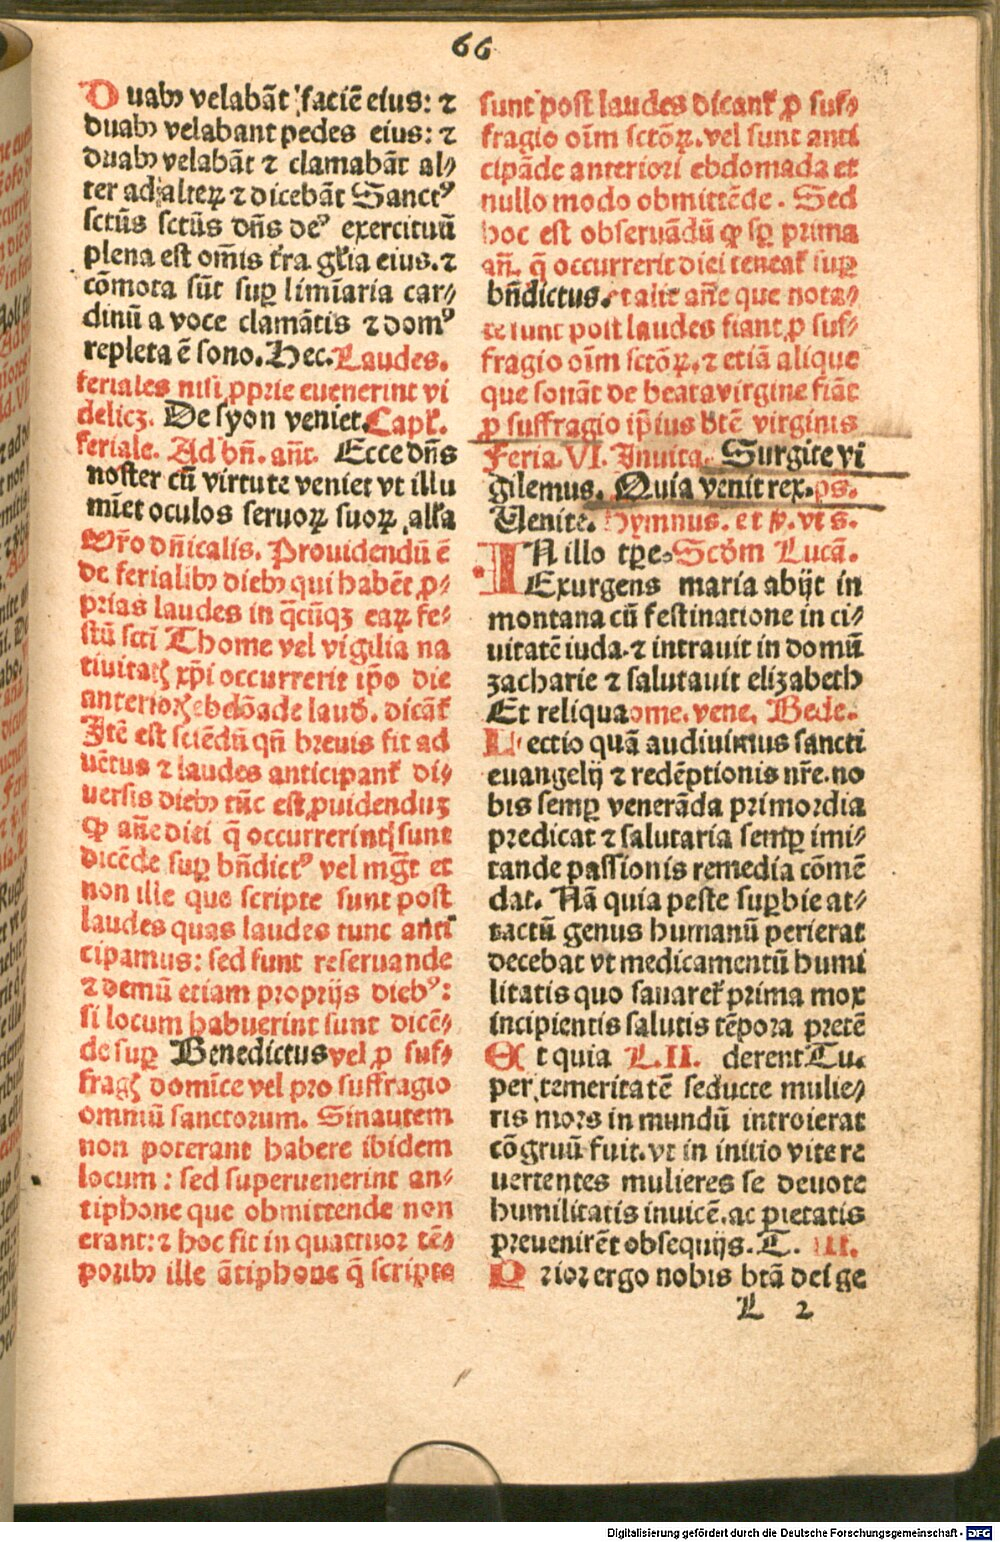 66
Duabꝫ velabāt faciē eius: ⁊
duabꝫ velabant pedes eius: ⁊
duabꝫ velabāt ⁊ clamabāt al⸗
ter ad alteꝝ ⁊ dicebāt Sanctꝰ
sctūs sctūs dn̄s deꝰ exercituū
plena est om̄is t̄ra gl̄ia eius. ⁊
cōmota sūt suꝑ limīaria car⸗
dinū a voce clamātis ⁊ domꝰ
repleta ē sono. Hec. Laudes.
feriales nisi ꝓprie euenerint vi
delicꝫ. De syon veniet. Capl̄.
feriale. Ad bn̄. an̄t. Ecce dn̄s
noster cū virtute veniet vt illu
mīet oculos seruoꝝ suoꝝ all̄a
Or̄o dn̄icalis. Prouidendū ē
de ferialibꝫ diebꝫ qui habēt ꝓ⸗
prias laudes in q̄cūqꝫ eaꝝ fe⸗
stū scti Thome vel vigilia na
tiuitatꝭ xp̄i occurrerit ip̄o die
anterioꝝ ebdōade laud. dicāt̄
Itē est sciēdū qn̄ breuis fit ad
uētus ⁊ laudes anticipant̄ di⸗
uersis diebꝫ tūc est ꝓuidenduꝫ
ꝙ an̄e diei q̄ occurrerint sunt
dicēde suꝑ bn̄dictꝰ vel mgt̄ et
non ille que scripte sunt post
laudes quas laudes tunc anti
cipamus: sed sunt reseruande
⁊ demū etiam proprijs diebꝰ:
si locum habuerint sunt dicē⸗
de suꝑ Benedictus vel ꝓ suf⸗
fragꝭ domīce vel pro suffragio
omniū sanctorum. Sin autem
non poterant habere ibidem
locum: sed superuenerint an⸗
tiphone que obmittende non
erant: ⁊ hoc fit in quattuor tē⸗
poribꝫ ille ātiphone q̄ scripte
sunt post laudes dicant̄ ꝓ suf⸗
fragio oīm sctōꝝ. vel sunt anti
cipāde anteriori ebdomada et
nullo modo obmittēde. Sed
hoc est obseruādū ꝙ sꝑ prima
an̄. q̄ occurrerit diei teneat̄ suꝑ
bn̄dictus. et alie an̄e que nota⸗
te sunt post laudes fiant ꝓ suf⸗
fragio oīm sctōꝝ. ⁊ etiā alique
que sonāt de beata virgine fiāt
ꝓ suffragio ip̄ius btē virginis
Feria. VI. Inuita. Surgite vi
gilemus. Quia venit rex. ps.
Venite. Hymnus. et ꝟ. vt s.
IN illo tꝑe. Scd̄m Lucā.
Exurgens maria abijt in
montana cū festinatione in ci⸗
uitatē iuda. ⁊ intrauit in domū
zacharie ⁊ salutauit elizabeth
Et reliqua. ome. vene. Bede.
Lectio quā audiuimus sancti
euangelij ⁊ redēptionis nr̄e. no
bis semꝑ venerāda primordia
predicat ⁊ salutaria semꝑ imi⸗
tande passionis remedia cōmē
dat. Nā quia peste suꝑbie at⸗
tactū genus humanū perierat
decebat vt medicamentū humi
litatis quo sanaret̄ prima mox
incipientis salutis tēpora pretē
Et quia L. II. derent Tu.
per temeritatē seducte mulie⸗
ris mors in mundū introierat
cōgruū fuit. vt in initio vite re
uertentes mulieres se deuote
humilitatis inuicē. ac pietatis
preuenirēt obsequijs. T. III.
Prior ergo nobis btā dei ge
L 2
Digitalisierung gefördert durch die Deutsche Forschungsgemeinschaft - DFG